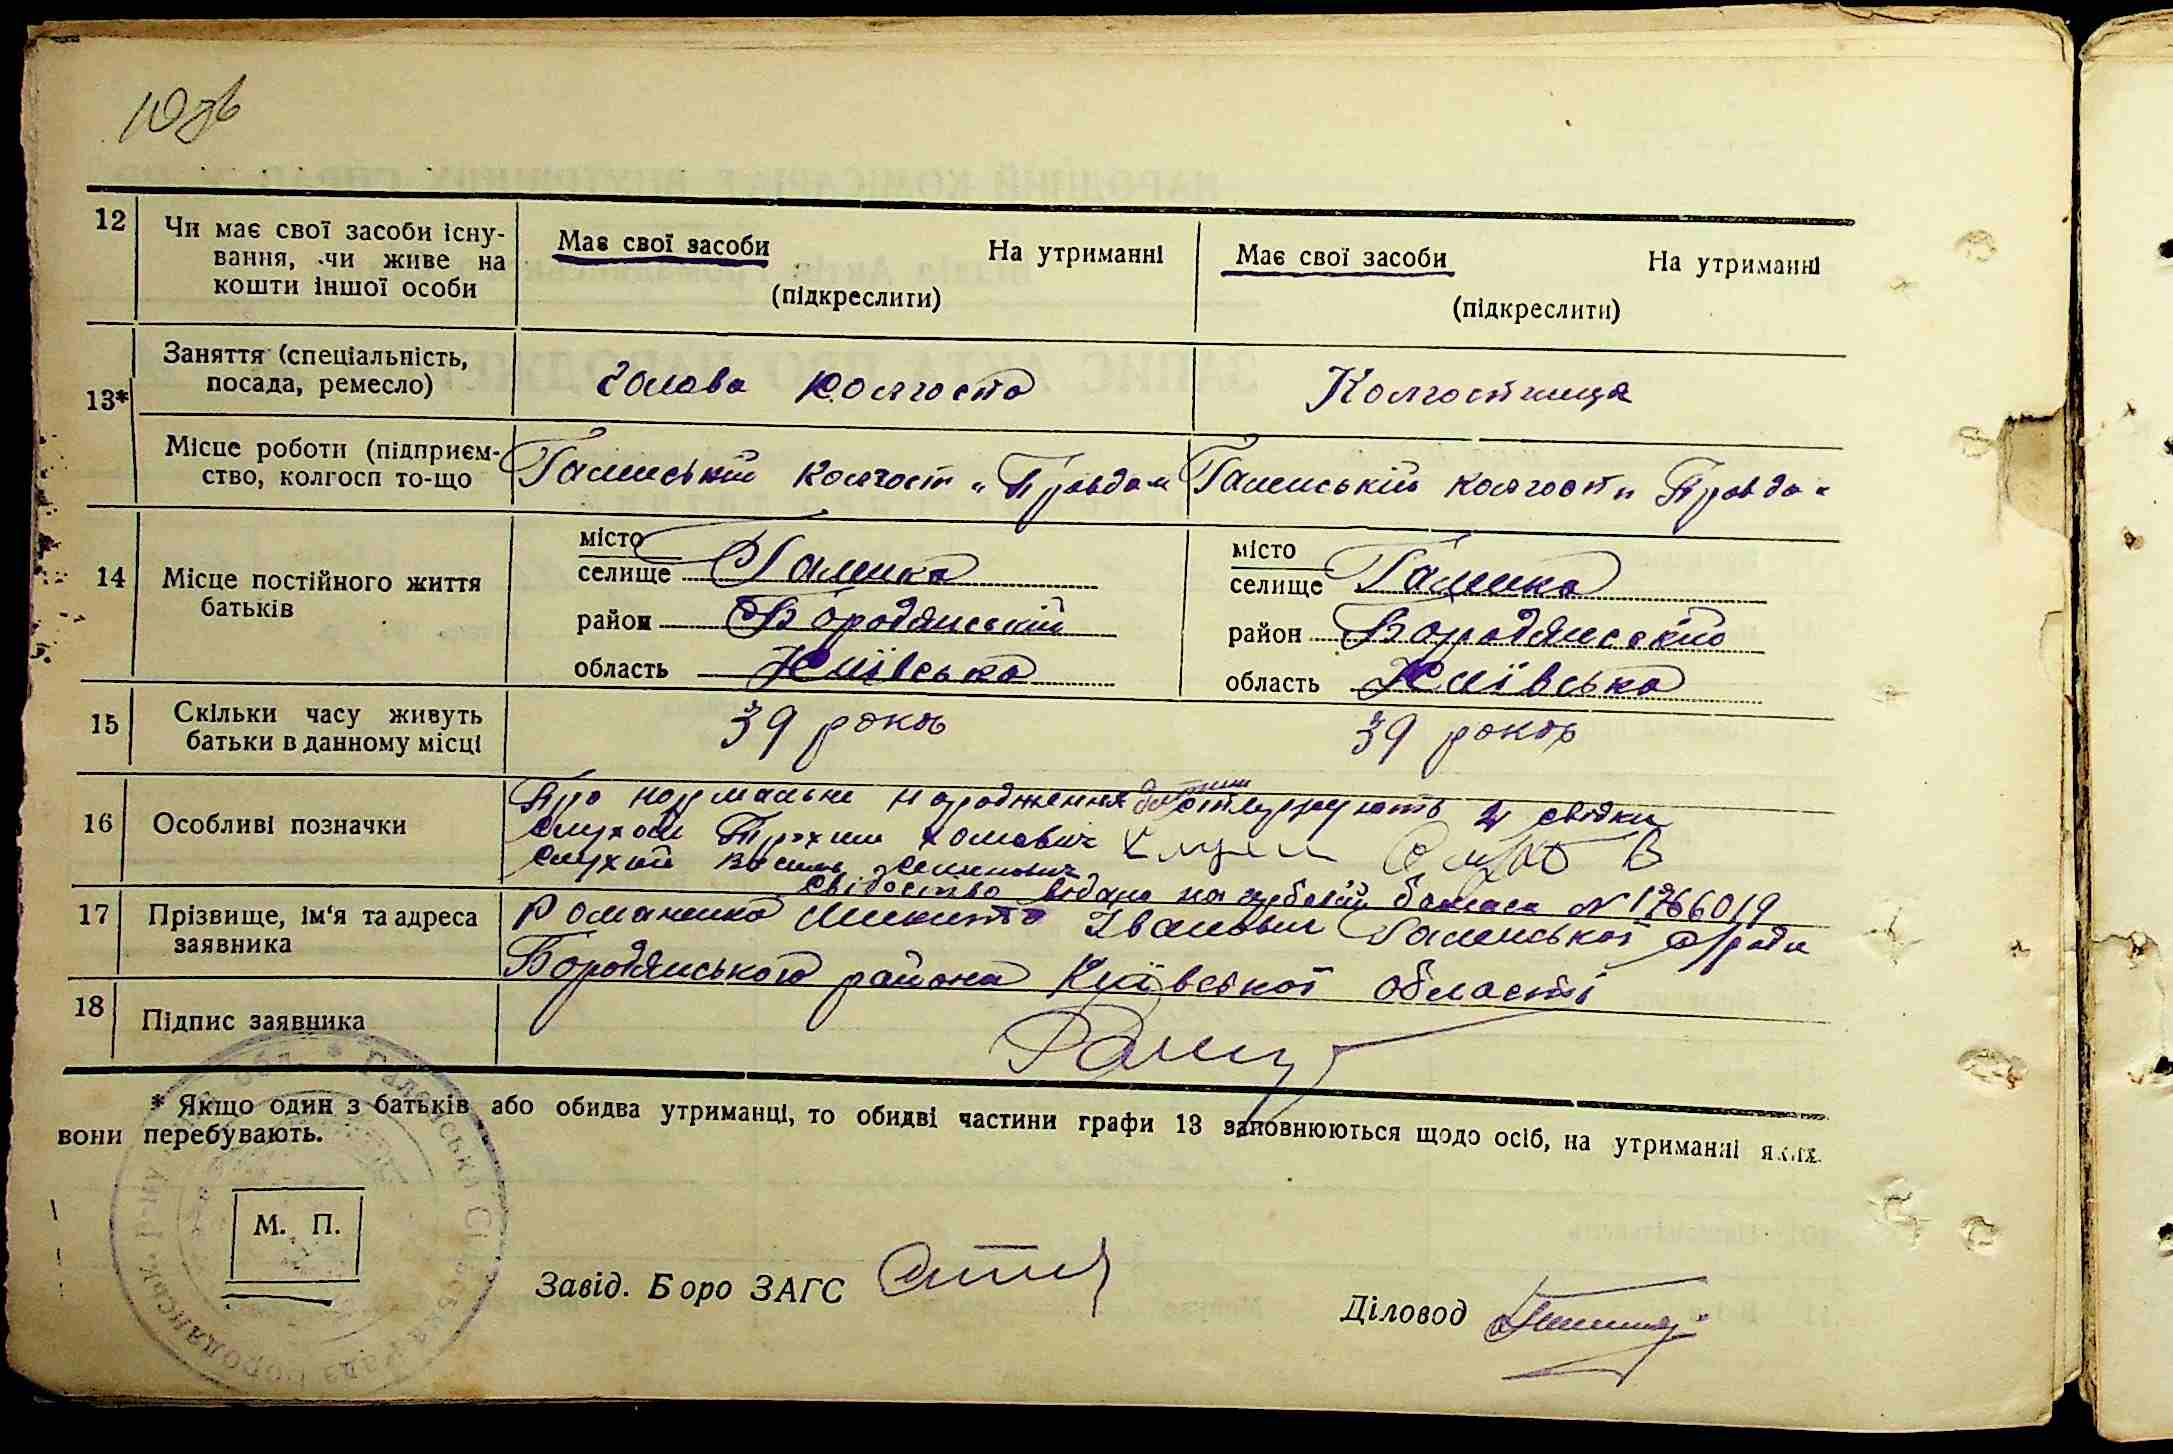 12
Чи має свої засоби існу-
вання, чи живе на
кошти іншої особи
Має свої засоби На утриманні
(підкреслити)
Має свої засоби На утриманні
(підкреслити)
13*
Заняття (спеціальність,
посада, ремесло)
Голова колгоспа
Колгоспниця
Місце роботи (підприєм-
ство, колгосп то-що
колгосп „Правда"
колгосп „Правда"
14
Місце постійного життя
батьків
місто
селище Галинка
район Бородянський
область Київська
місто
селище Галинка
район Бородянський
область Київська
15
Скільки часу живуть
батьки в данному місці
39 років
39 років
16
Особливі позначки
Про народження 2 свідки
Хомович
Свідоцтво видано на бланк N
17
Прізвище, ім'я та адреса
заявника
Романенко Микита Іванович
Бородянського района Київської області
18
Підпис заявника
* Якщо один з батьків або обидва утриманці, то обидві частини графи 13 заповнюються щодо осіб, на утриманні яких
вони перебувають.
М. П.
Завід. Бюро ЗАГС
Діловод